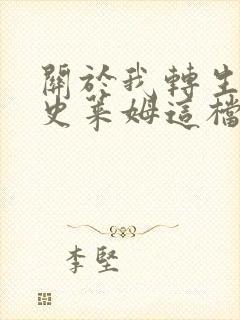 關於我轉生
史萊姆這檔
李堅